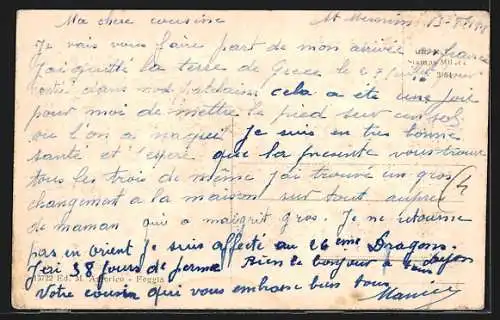 Ma chère cousine
Je vais vous faire part de mon arrivée en France
J'ai quitté la terre de Grèce le 27 juillet
cela a été une joie
pour moi de mettre le pied sur un sol
ou l'on a naquit Je suis en très bonne
santé et j'espère que la présente vous trouve
tous les trois de même J'ai trouvé un gros
changement a la maison surtout auprès
de maman qui a maigrit gros. Je ne retourne
pas en Orient je suis affecté au 26 eme Dragons
J'ai 38 jours de perme Bien le bonjour a tous
15722 Ed. M. - Foggia
Votre cousin qui vous embrasse bien tous